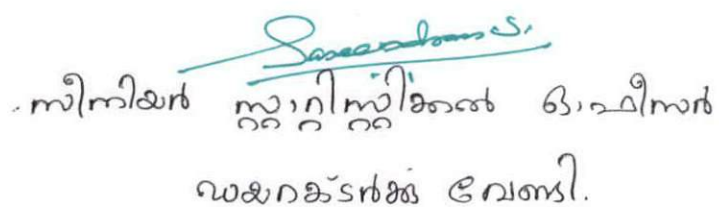 സീനിയർ സ്റ്റാറ്റിസ്റ്റിക്കൽ ഓഫീസർ
ഡയറക്ടർക്കു വേണ്ടി.